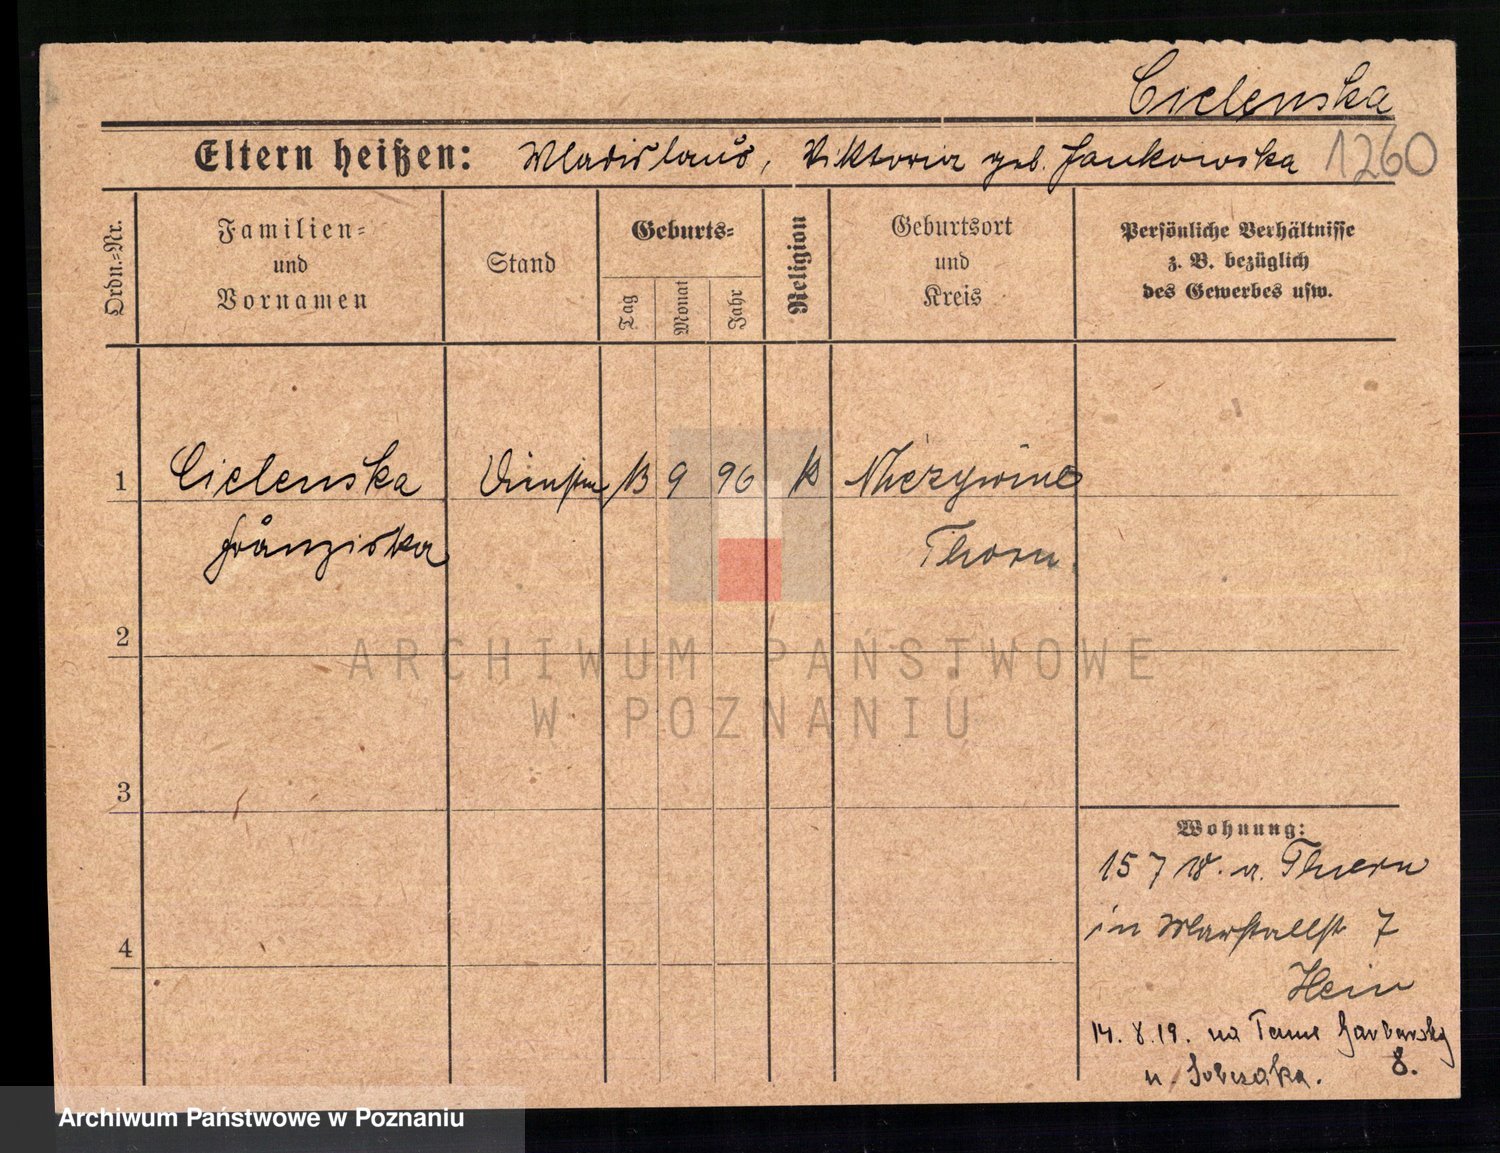 Cielenska
Eltern heißen: Wladislaus, Viktoria geb. Jankowska 1260
Ordn.-Nr.
Familien-
und
Vornamen
Stand
Geburts-
Tag
Monat
Jahr
Religion
Geburtsort
und
Kreis
Persönliche Verhältnisse
z. B. bezüglich
des Gewerbes usw.
1 Cielenska 13 9 96 k
Franziska Thorn
2
ARCHIWUM PAŃSTWOWE
W POZNANIU
3
4
Wohnung:
15 7 18. a. Thorn
in Marstallst 7
Hein
14.8.19. na Tame Garbarsky
8.
u. Sobczaka.
Archiwum Państwowe w Poznaniu